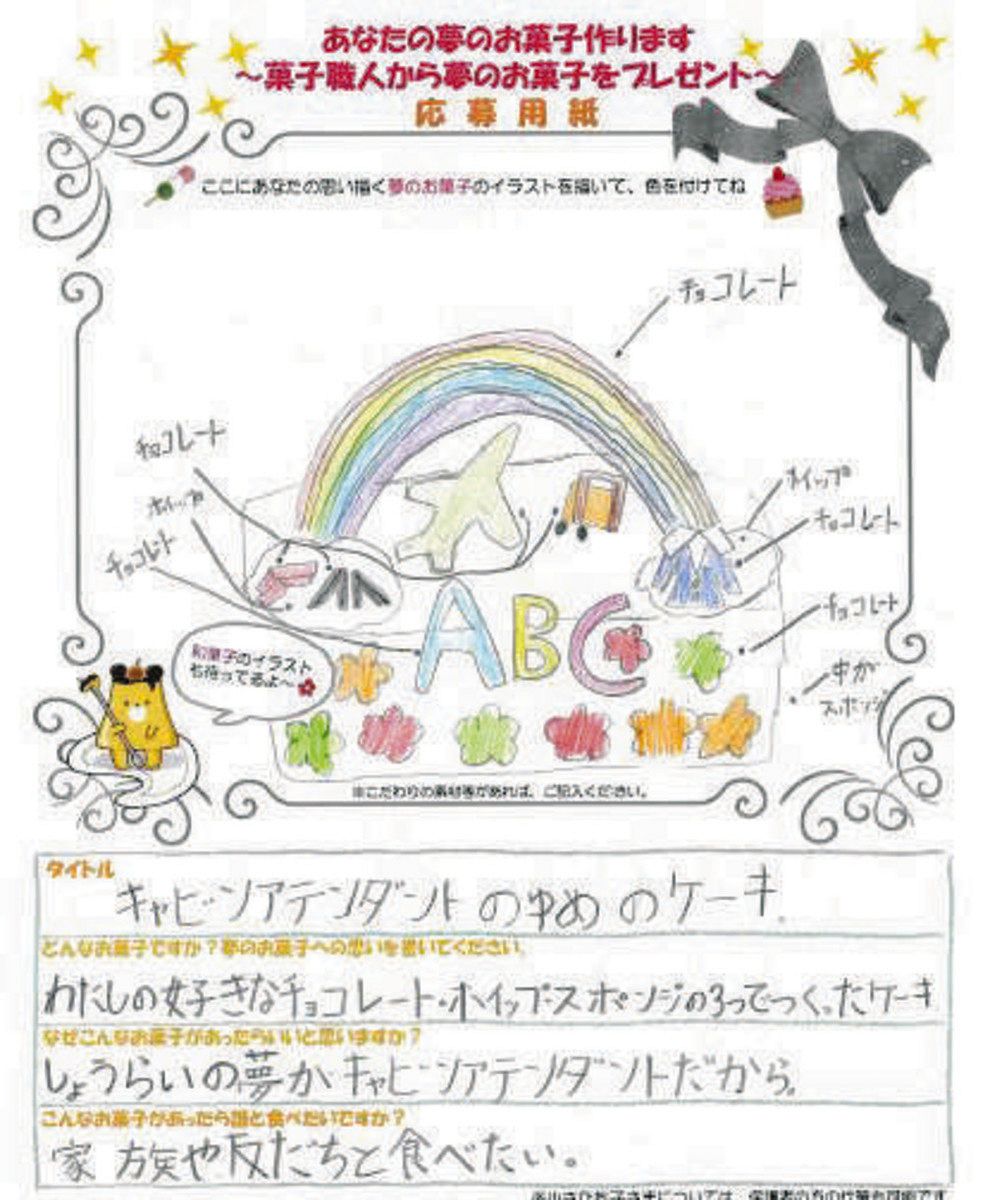 あなたの夢のお菓子作ります
～菓子職人から夢のお菓子をプレゼント～
応募用紙
ここにあなたの思い描く夢のお菓子のイラストを描いて、色を付けてね
チョコレート
チョコレート
ホイップ
チョコレート
ホイップ
チョコレート
チョコレート
中が
スポンジ
ABC
和菓子のイラスト
も待ってるよ～
※こだわりの素材等があれば、ご記入ください。
タイトル
キャビンアテンダントのゆめのケーキ
どんなお菓子ですか？夢のお菓子への思いを書いてください。
わたしの好きなチョコレート・ホイップ・スポンジの3つでつくったケーキ
なぜこんなお菓子があったらいいと思いますか？
しょうらいの夢がキャビンアテンダントだから。
こんなお菓子があったら誰と食べたいですか？
家族や友だちと食べたい。